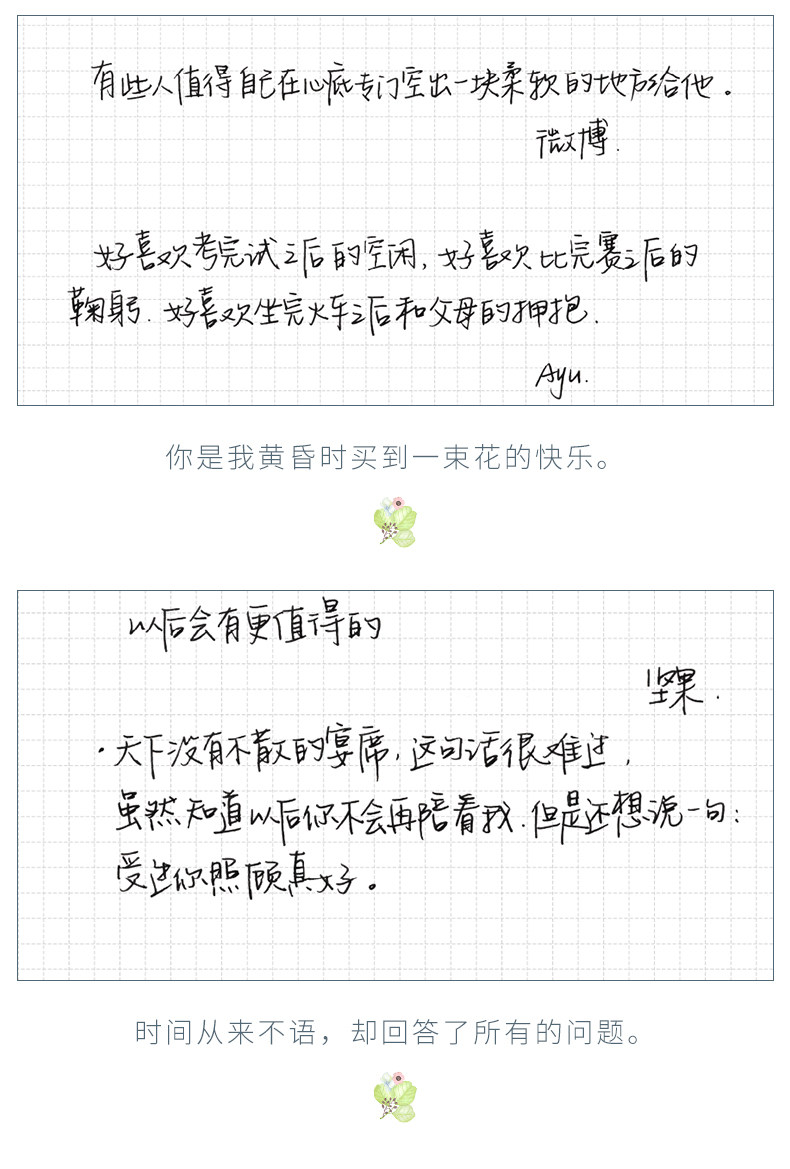 有些人值得自己在心底专门空出一块柔软的地方给他。
微博.
好喜欢考完试之后的空闲,好喜欢比完赛之后的
鞠躬.好喜欢坐完火车之后和父母的拥抱.
Ayu.
你是我黄昏时买到一束花的快乐。
以后会有更值得的
坚果.
·天下没有不散的宴席,这句话很难过,
虽然知道以后你不会再陪着我.但是还想说一句:
受过你照顾真好。
时间从来不语，却回答了所有的问题。